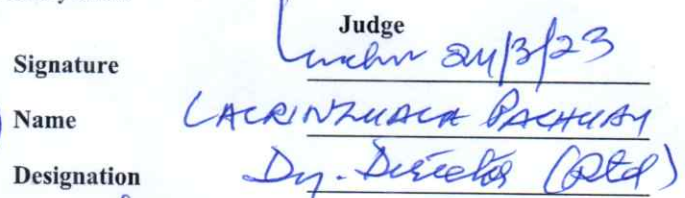 Judge
Signature 24/3/23
Name LALRINZUALA PACHUAU
Designation Dy. Director (Rtd)